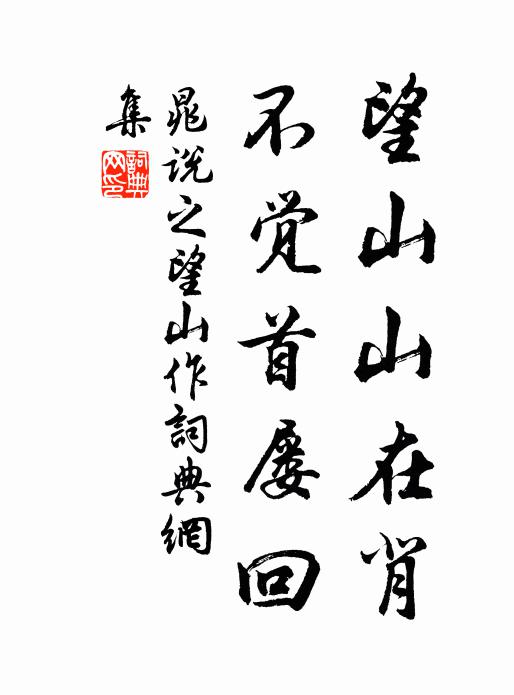 望山山在背
不觉首屡回
晁说之望山作詞典網
集
詞典
网印